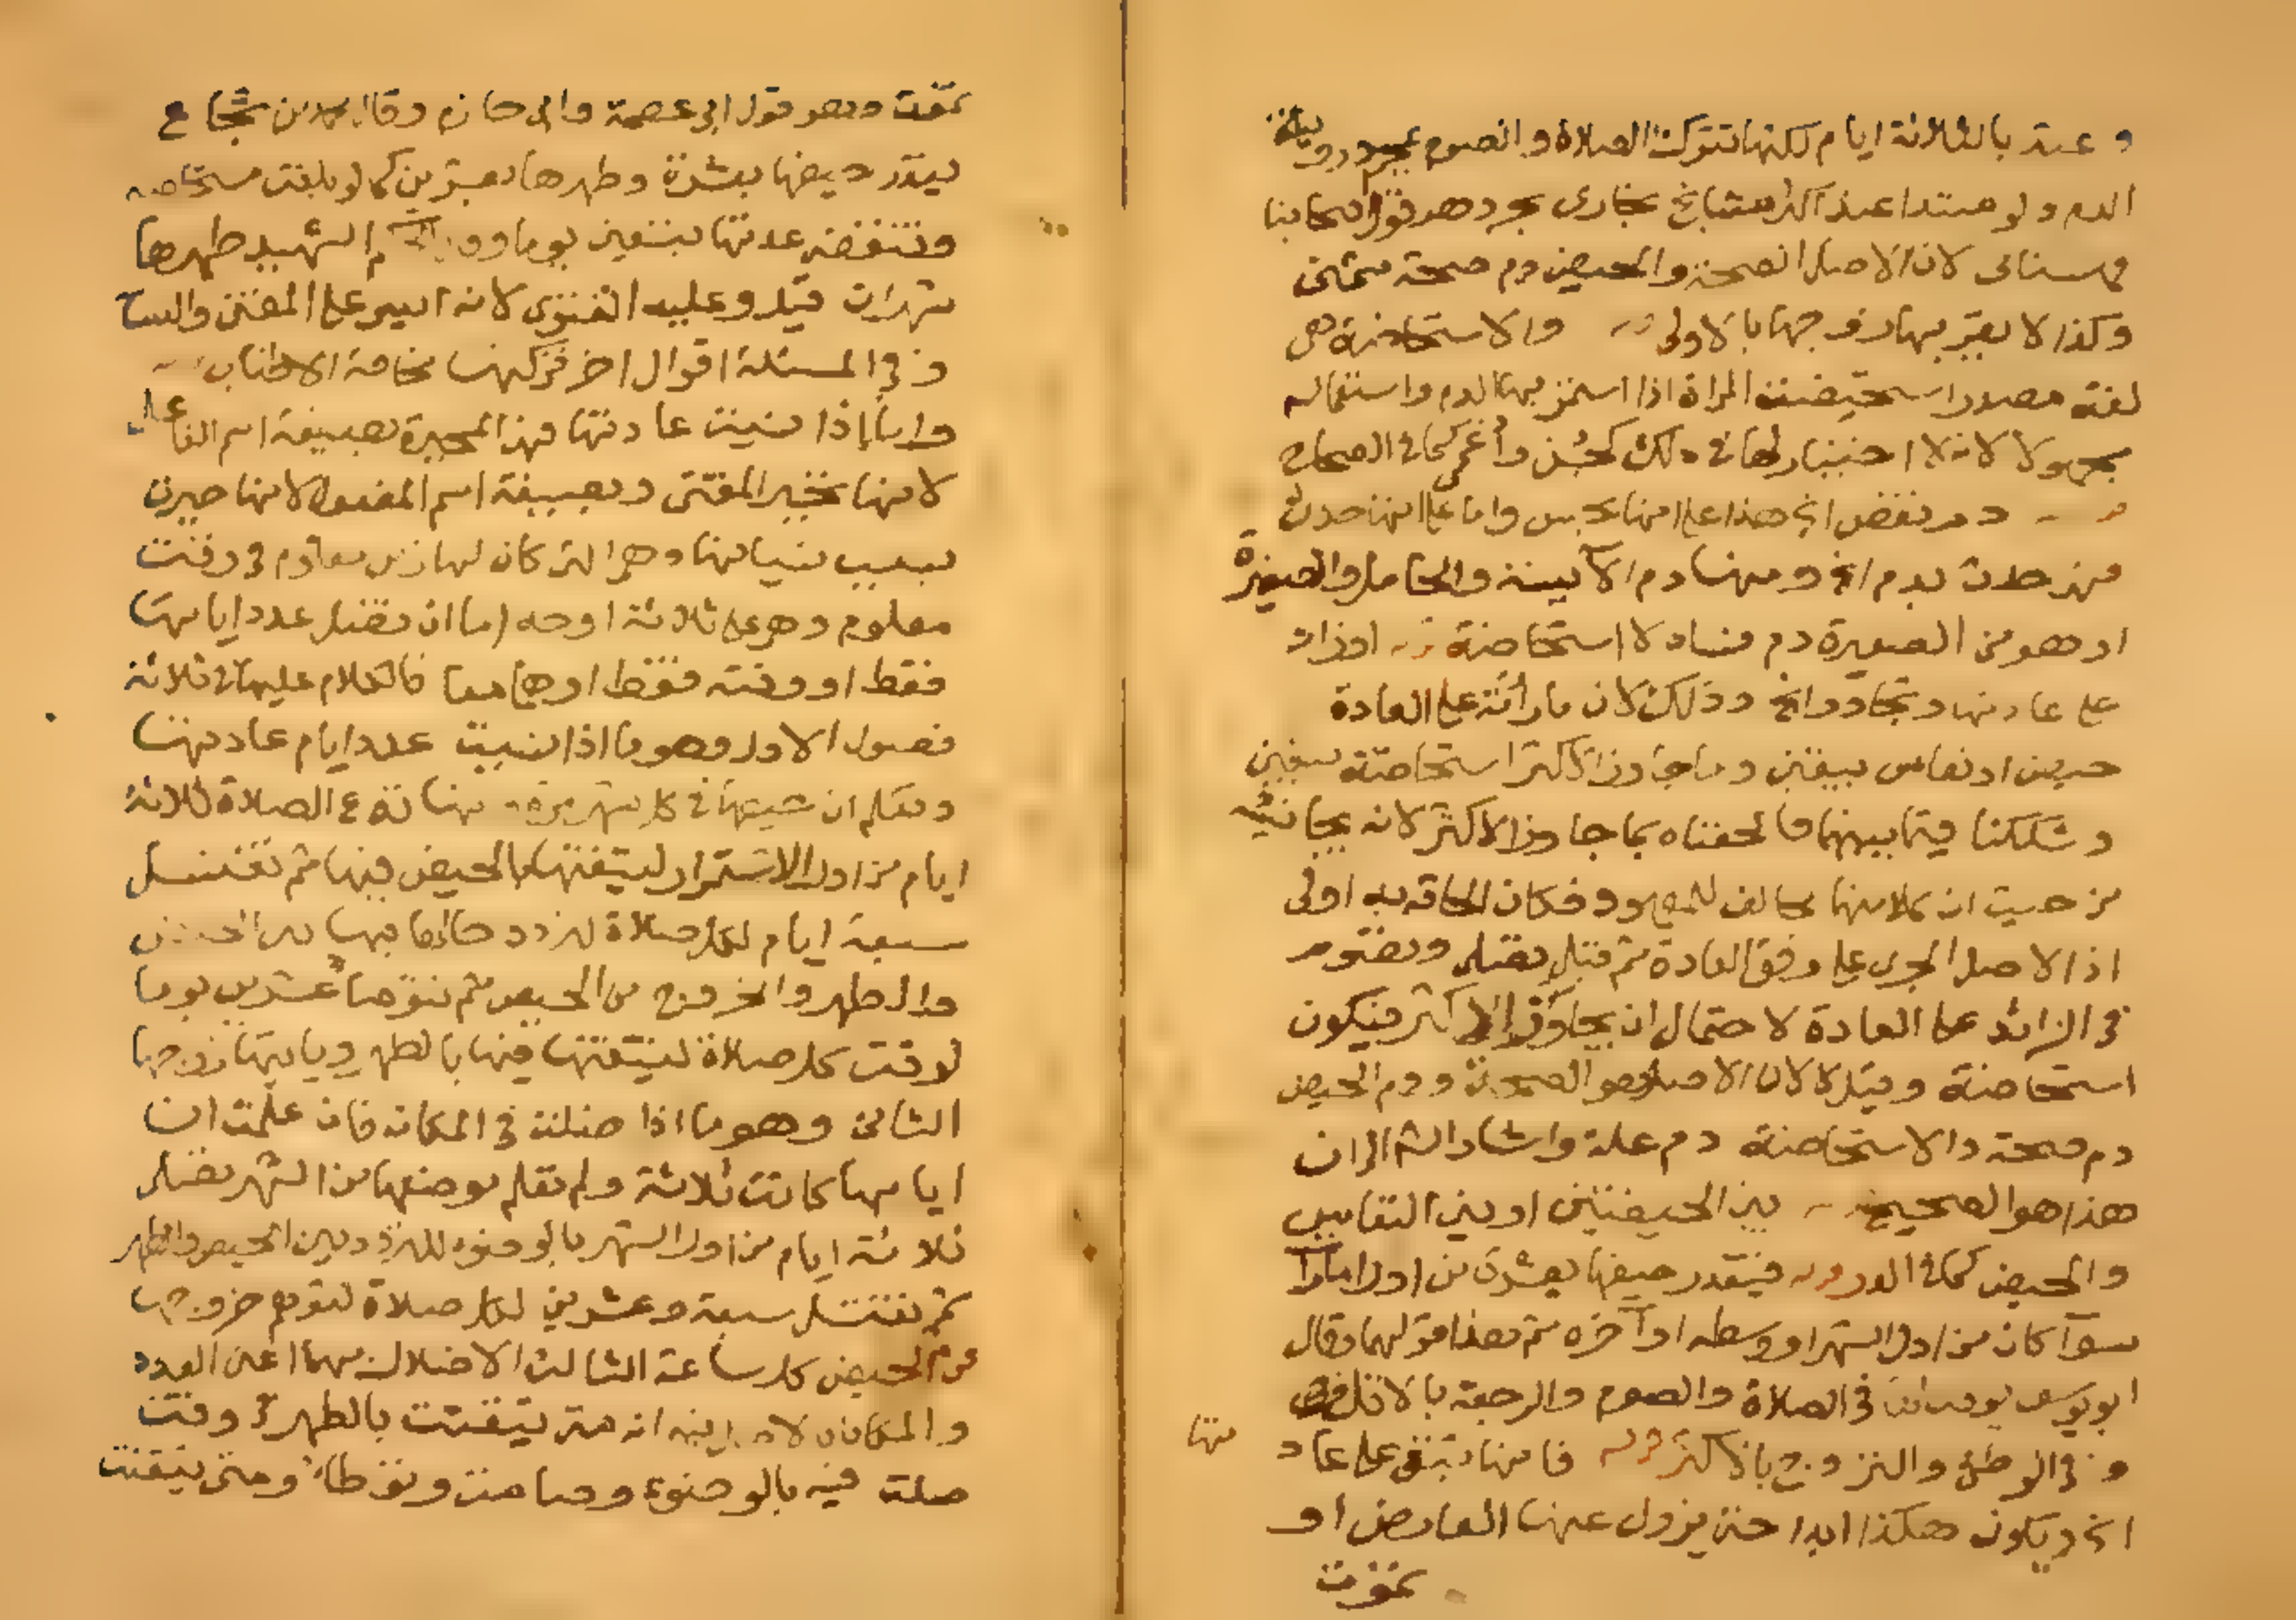 وعبتد بالثلاثة ايام لكنها تترك الصلاة والصوم بمجرد روية
الدم ولو مبتدا عند اكثر مشايخ بخارى وهو قول اصحابنا
لان الاصل الصحة والحيض دم صحة
وكذا لا يقربها زوجها بالاولى والاستحاضة هي
لغة مصدر استحيضت المراة اذا استمر بها الدم واستعماله
مجهولا لانه لا اختيار لها في ذلك كجُن وأغمي كما في الصحاح
دم نقص الخ هذا على انها نجس واما على انها حدث
فهي حدث بدم الخ ومنها دم الآيسة والحامل والصغيرة
او هو من الصغيرة دم فساد لا استحاضة او زاد
على عادتها وتجاوز الخ وذلك لان ما رأته على العادة
حيض او نفاس بيقين وما جاوز الاكثر استحاضة بيقين
وشككنا فيما بينهما فالحقناه بما جاوز الاكثر لانه يجانسه
من حيث ان كلا منها مخالف للمعهود فكان الحاقه به اولى
اذ الاصل الجري على وفق العادة ثم قيل تصلي وتصوم
في الزائد على العادة لاحتمال ان يجاوز الاكثر فيكون
استحاضة وقيل لا لان الاصل هو الصحة ودم الحيض
دم صحة والاستحاضة دم علة واشار الشارح الى ان
هذا هو الصحيح بين الحيضتين او بين النفاس
والحيض كما في الدرر فيقدر حيضها بعشرة من اول ما رأت
سوآ كان من اول الشهر او وسطه او آخره ثم هذا قولهما وقال
ابو يوسف يوخذ في الصلاة والصوم والرجعة بالاقل
وفي الوطئ والتزوج بالاكثر فانها تبقى على عاد
تها
الخ ويكون هكذا ابدا حتى يزول عنها العارض او
تموت
تموت وهو قول ابي عصمة وابي حازم وقال محمد بن شجاع
يقدر حيضها بعشرة وطهرها بعشرين كما لو بلغت مستحاضة
وتنقضي عدتها بتسعين يوما الشهيد طهرها
شهران قيل وعليه الفتوى لانه ايسر على المفتي والنسا
وفي المسئلة اقوال اخر تركها مخافة الاطناب
واما إذا نسيت عادتها فهي المحيرة بصيغة اسم الفاعل
لانها تحير المفتي وبصيغة اسم المفعول لانها حيرت
بسبب نسيانها وهي التي كان لها معلوم في وقت
معلوم وهي على ثلاثة اوجه اما ان تضل عدد ايامها
فقط او وقته فقط او هما معا فالكلام عليها في ثلاثة
فصول الاول وهو ما اذا نسيت عدد ايام عادتها
وتعلم ان حيضها في كل شهر مرة تدع الصلاة ثلاثة
ايام من اول الاستمرار لتيقنها بالحيض فيها ثم تغتسل
سبعة ايام لكل صلاة لتردد حالها فيها بين الحيض
والطهر والخروج من الحيض ثم تتوضأ عشرين يوما
لوقت كل صلاة لتيقنها فيها بالطهر وياتيها زوجها
الثاني وهو ما اذا ضلت في المكان فان علمت ان
ايامها كانت ثلاثة ولم تعلم موضعها من الشهر تصلي
ثلاثة ايام من اول الشهر بالوضوء للتردد بين الحيض والطهر
ثم تغتسل سبعة وعشرين لكل صلاة لتوهم خروجها
من الحيض كل ساعة الثالث الاضلال بهما اعني العدد
والمكان انه متى تيقنت بالطهر في وقت
صلت فيه بالوضوء وصامت وتوطأ ومتى تيقنت